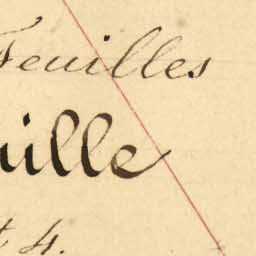 Feuilles
uille
t 4.